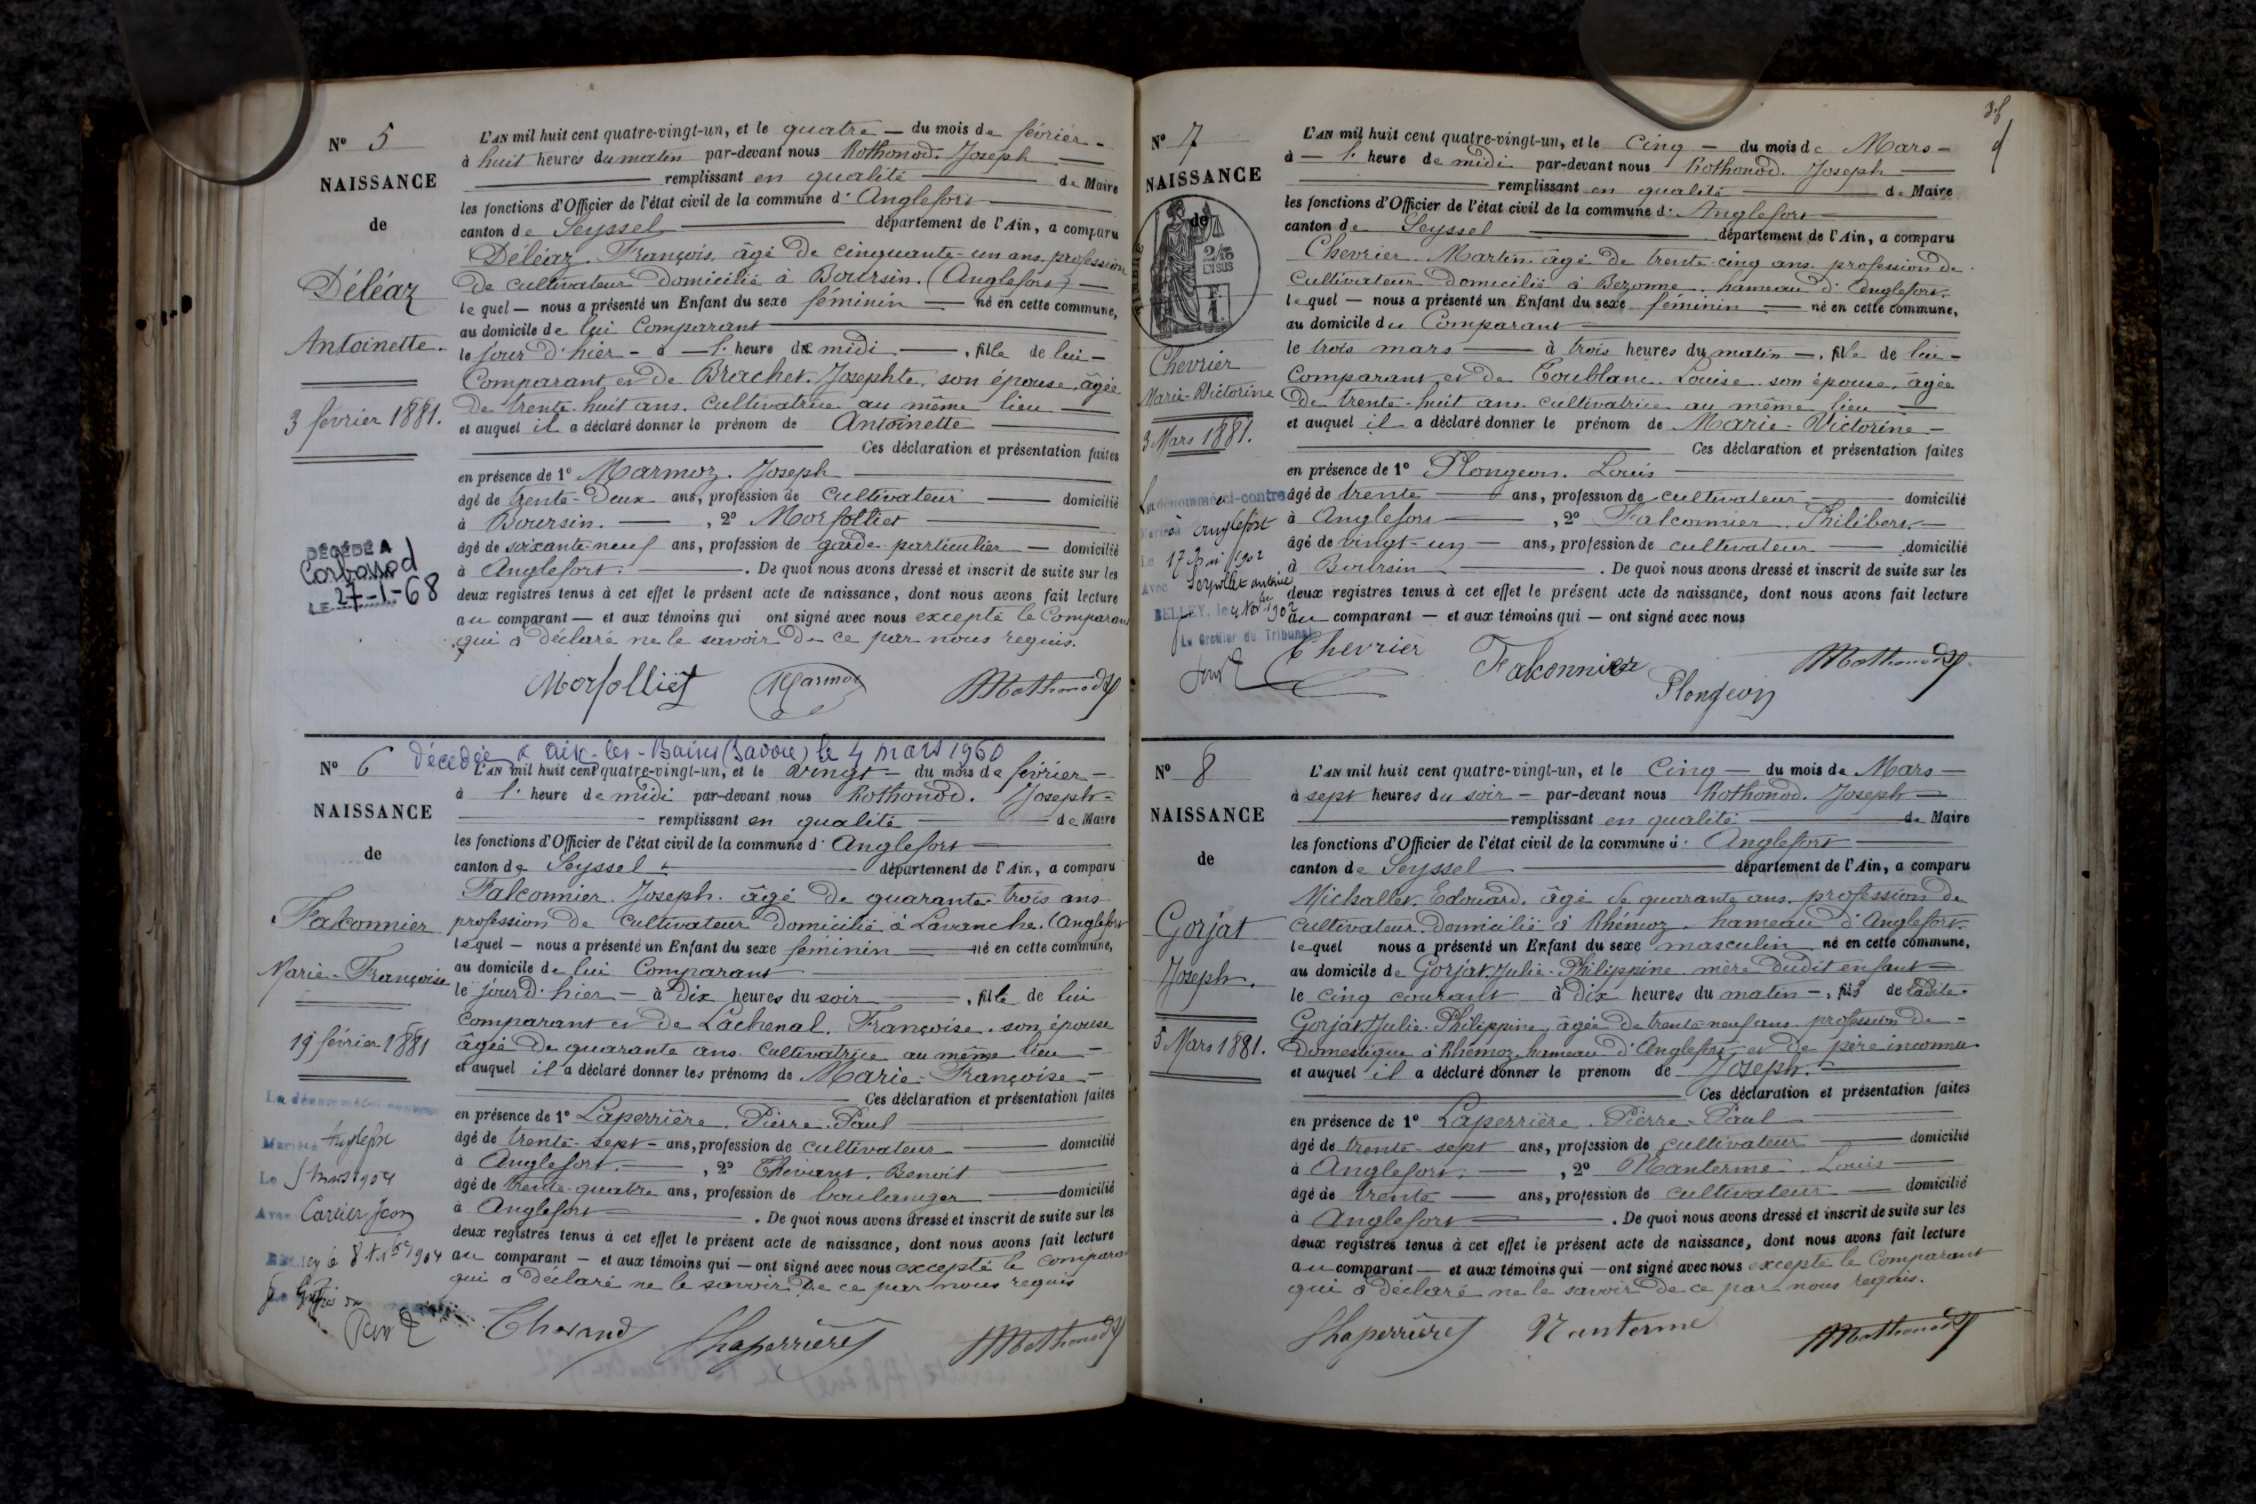 Nº 5
NAISSANCE
de
Déléaz
Antoinette.
3 février 1881.
DÉCÉDÉ A
Corbonod
LE 27-1-68
L'AN mil huit cent quatre-vingt-un, et le quatre — du mois de février -
à huit heures du matin par-devant nous Rothonod. Joseph —
— remplissant en qualité — de Maire
les fonctions d'Officier de l'état civil de la commune d' Anglefort —
canton de Seyssel — département de l'Ain, a comparu
Déléaz. François, âgé de cinquante-un ans. profession
de cultivateur domicilié à Boursin. (Anglefort) —
lequel — nous a présenté un Enfant du sexe féminin — né en cette commune,
au domicile de lui Comparant —
le jour d'hier - à — 1. heure de midi —, fille de lui -
Comparant et de Brachet. Josephte, son épouse, âgée
de trente-huit ans. cultivatrice au même lieu —
et auquel il a déclaré donner le prénom de Antoinette —
Ces déclaration et présentation faites
en présence de 1º Marmoz. Joseph —
âgé de trente-deux ans, profession de cultivateur — domicilié
à Boursin. —, 2º Morfolliet —
âgé de soixante-neuf ans, profession de garde-particulier — domicilié
à Anglefort. —. De quoi nous avons dressé et inscrit de suite sur les
deux registres tenus à cet effet le présent acte de naissance, dont nous avons fait lecture
au comparant — et aux témoins qui ont signé avec nous excepté le Comparant
qui a déclaré ne le savoir de ce par nous requis.
Morfolliet Marmoz
Nº 6
décédée à aix-les-Bains (Savoie) le 4 mars 1960
NAISSANCE
de
Falconnier
Marie-Françoise
19 février 1881
Mariée Anglefort
Le 5 mars 1904
Avec Cartier Jean
L'AN mil huit cent quatre-vingt-un, et le vingt — du mois de février —
à 1. heure de midi par-devant nous Rothonod. Joseph -
— remplissant en qualité — de Maire
les fonctions d'Officier de l'état civil de la commune d' Anglefort —
canton de Seyssel — département de l'Ain, a comparu
Falconnier. Joseph. âgé de quarante-trois ans
profession de cultivateur domicilié à Lavanche. (Anglefort
lequel — nous a présenté un Enfant du sexe féminin — né en cette commune,
au domicile de lui Comparant —
le jour d'hier — à dix heures du soir —, fille de lui
comparant et de Lachenal. Françoise. son épouse
âgée de quarante ans. cultivatrice au même lieu —
et auquel il a déclaré donner les prénoms de Marie-Françoise —
Ces déclaration et présentation faites
en présence de 1º Laperrière. Pierre-Paul —
âgé de trente-sept — ans, profession de cultivateur — domicilié
à Anglefort. —, 2º Thévand. Benoit —
âgé de trente-quatre ans, profession de boulanger — domicilié
à Anglefort —. De quoi nous avons dressé et inscrit de suite sur les
deux registres tenus à cet effet le présent acte de naissance, dont nous avons fait lecture
au comparant — et aux témoins qui — ont signé avec nous excepté le compara
qui a déclaré ne le savoir de ce par nous requis
Nº 7
NAISSANCE
de
2/10
EN SUS
Chevrier
Marie-Victorine
3 Mars 1881.
La dénommée ci-contre
Mariée à Anglefort
Le 17 1902
Avec
BELLEY, le 4 1902
Le Greffier du Tribunal
L'AN mil huit cent quatre-vingt-un, et le cinq — du mois de Mars —
à — 1. heure de midi par-devant nous Rothonod. Joseph —
— remplissant en qualité — de Maire
les fonctions d'Officier de l'état civil de la commune d' Anglefort —
canton de Seyssel — département de l'Ain, a comparu
Chevrier. Martin âgé de trente-cinq ans. profession de
cultivateur domicilié à Bezonne. hameau d'Anglefort.
lequel — nous a présenté un Enfant du sexe féminin — né en cette commune,
au domicile du Comparant —
le trois mars — à trois heures du matin —, fille de lui -
Comparant et de Toublanc. Louise. son épouse, âgée
de trente-huit ans. cultivatrice au même lieu —
et auquel il a déclaré donner le prénom de Marie-Victorine —
Ces déclaration et présentation faites
en présence de 1º Plongeon. Louis —
âgé de trente — ans, profession de cultivateur — domicilié
à Anglefort —, 2º Falconnier. Philibert. —
âgé de vingt-un — ans, profession de cultivateur — domicilié
à Boursin —. De quoi nous avons dressé et inscrit de suite sur les
deux registres tenus à cet effet le présent acte de naissance, dont nous avons fait lecture
au comparant — et aux témoins qui — ont signé avec nous
Chevrier Falconnier Plongeon
Nº 8
NAISSANCE
de
Gorjat
Joseph.
5 Mars 1881.
L'AN mil huit cent quatre-vingt-un, et le cinq — du mois de Mars —
à sept heures du soir — par-devant nous Rothonod. Joseph —
— remplissant en qualité — de Maire
les fonctions d'Officier de l'état civil de la commune d' Anglefort —
canton de Seyssel — département de l'Ain, a comparu
Michallet. Edouard. âgé de quarante ans. profession de
cultivateur. domicilié à Rhémoz. hameau d'Anglefort.
lequel nous a présenté un Enfant du sexe masculin né en cette commune,
au domicile de Gorjat Julie-Philippine. mère dudit enfant —
le cinq courant à dix heures du matin —, fils de ladite
Gorjat Julie-Philippine, âgée de trente-neuf ans. profession de —
domestique à Rhémoz hameau d'Anglefort et de père inconnu
et auquel il a déclaré donner le prénom de Joseph. —
Ces déclaration et présentation faites
en présence de 1º Laperrière. Pierre-Paul —
âgé de trente-sept ans, profession de cultivateur — domicilié
à Anglefort. —, 2º Nanterme. Louis —
âgé de trente — ans, profession de cultivateur — domicilié
à Anglefort —. De quoi nous avons dressé et inscrit de suite sur les
deux registres tenus à cet effet le présent acte de naissance, dont nous avons fait lecture
au comparant — et aux témoins qui — ont signé avec nous excepté le Comparant
qui a déclaré ne le savoir de ce par nous requis.
Nanterme